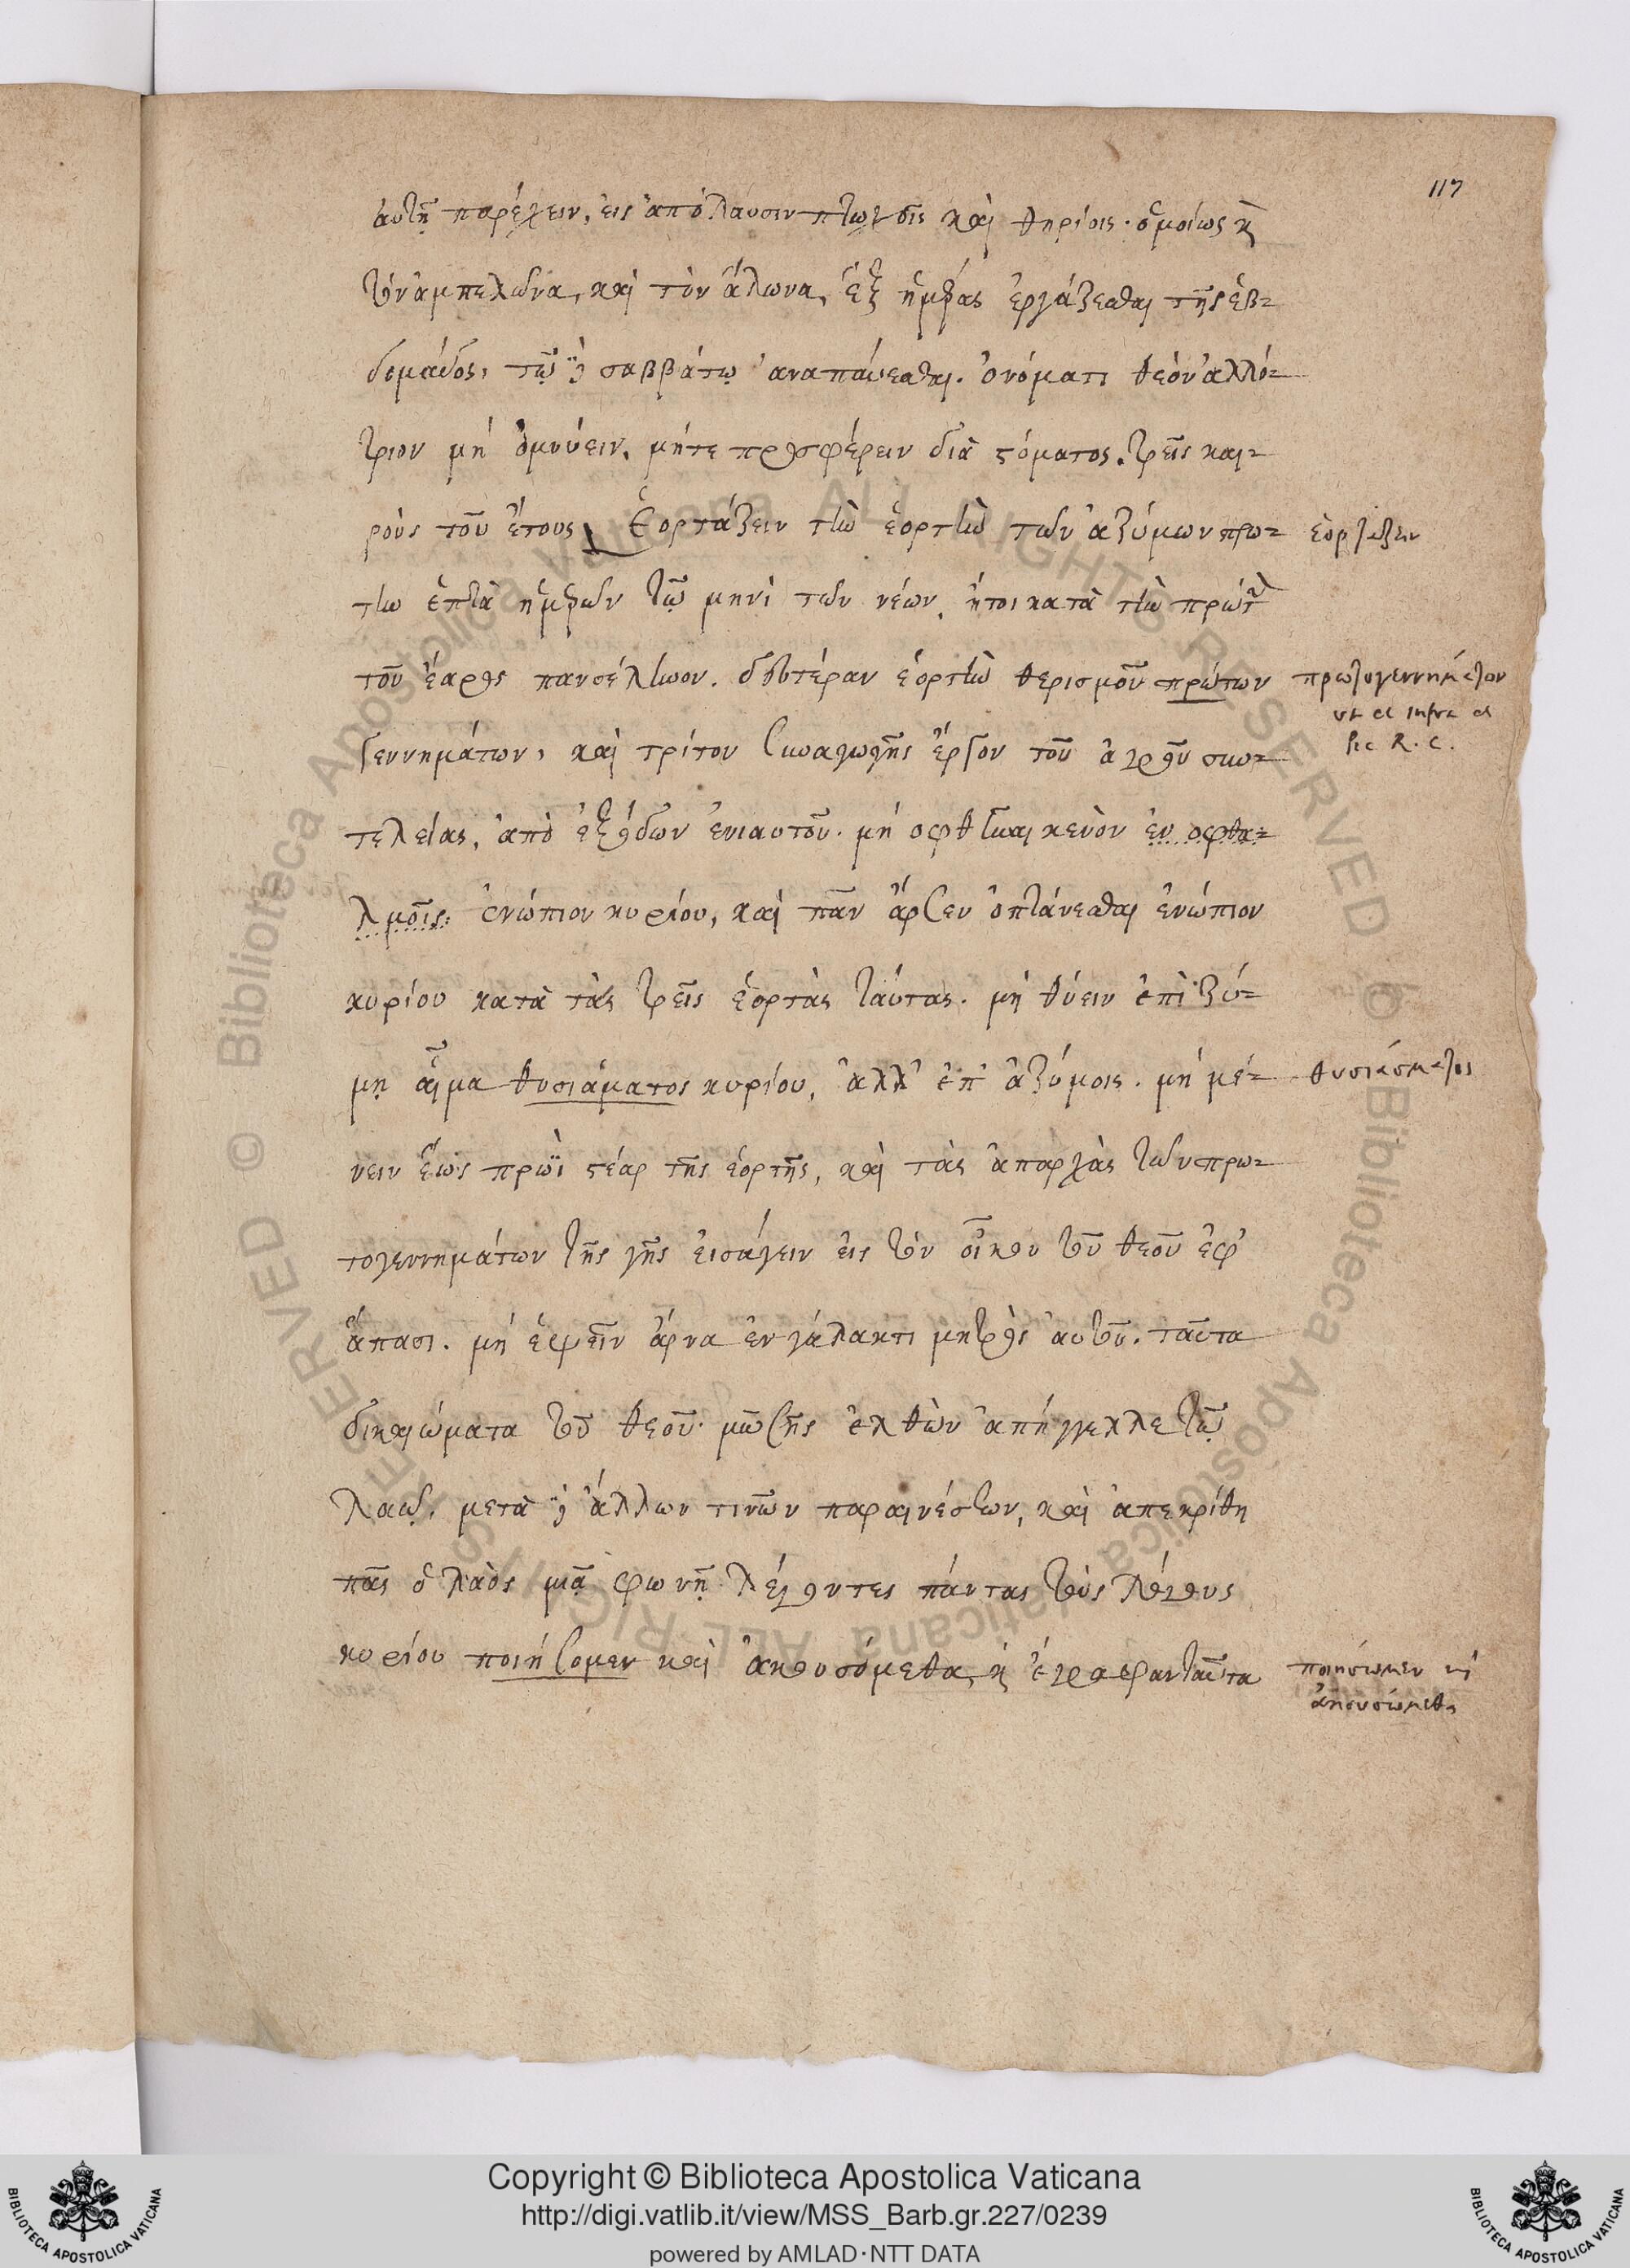 117
αὐτῇ παρέχειν, εἰς ἀπόλαυσιν πτωχοῖς καὶ θηρίοις. ὁμοίως κ̀
τὸν ἀμπελῶνα, καὶ τὸν ἅλωνα, ἓξ ἡμέρας ἐργάζεσθαι τῆς ἑβ=
δομάδος, τῷ δὲ σαββάτῳ ἀναπαύεσθαι. ὀνόματι θεὸν ἀλλό=
τριον μὴ ὀμνύειν, μήτε προσφέρειν διὰ στόματος. τρεῖς και=
ροὺς τοῦ ἔτους Ἑορτάζειν τὴν ἑορτὴν τῶν ἀζύμων πρώ= ἑορτάζειν
την ἑπτὰ ἡμερῶν τῷ μηνὶ τῶν νέων, ἤτοι κατὰ τὴν πρώτην
τοῦ ἔαρος πανσέληνον. δευτέραν ἑορτὴν θερισμοῦ πρώτων πρωτογεννημάτων
ut et infra et
γεννημάτων, καὶ τρίτον συναγωγῆς ἔργον τοῦ ἀγροῦ συν= sic R. C.
τελείας, ἀπὸ ἐξόδων ἐνιαυτοῦ. μὴ ὀφθῆναι κενὸν ἐν ὀφθα=
λμοῖς. ἐνώπιον κυρίου, καὶ πᾶν ἄρσεν ὀπτάνεσθαι ἐνώπιον
κυρίου κατὰ τὰς τρεῖς ἑορτὰς ταύτας. μὴ θύειν ἐπὶ ζύ=
μῃ αἷμα θυσιάματος κυρίου, ἀλλ' ἐπ' ἀζύμοις. μὴ μέ= θυσιάσματος
νειν ἕως πρωῒ στέαρ τῆς ἑορτῆς, καὶ τὰς ἀπαρχὰς τῶν πρω=
τογεννημάτων τῆς γῆς εἰσάγειν εἰς τὸν οἶκον τοῦ θεοῦ ἐφ'
ἅπασι. μὴ ἑψεῖν ἄρνα ἐν γάλακτι μητρὸς αὐτοῦ. ταῦτα
δικαιώματα τοῦ θεοῦ. μωσῆς ἐλθὼν ἀπήγγελλε τῷ
λαῷ, μετὰ δὲ ἄλλων τινῶν παραινέσεων, καὶ ἀπεκρίθη
πᾶς ὁ λαὸς μιᾷ φωνῇ λέγοντες πάντας τοὺς λόγους
κυρίου ποιήσομεν καὶ ἀκουσόμεθα, κ̀ ἔγραψαν ταῦτα ποιήσωμεν κ̀
ἀκουσώμεθα
Copyright © Biblioteca Apostolica Vaticana
http://digi.vatlib.it/view/MSS_Barb.gr.227/0239
powered by AMLAD·NTT DATA